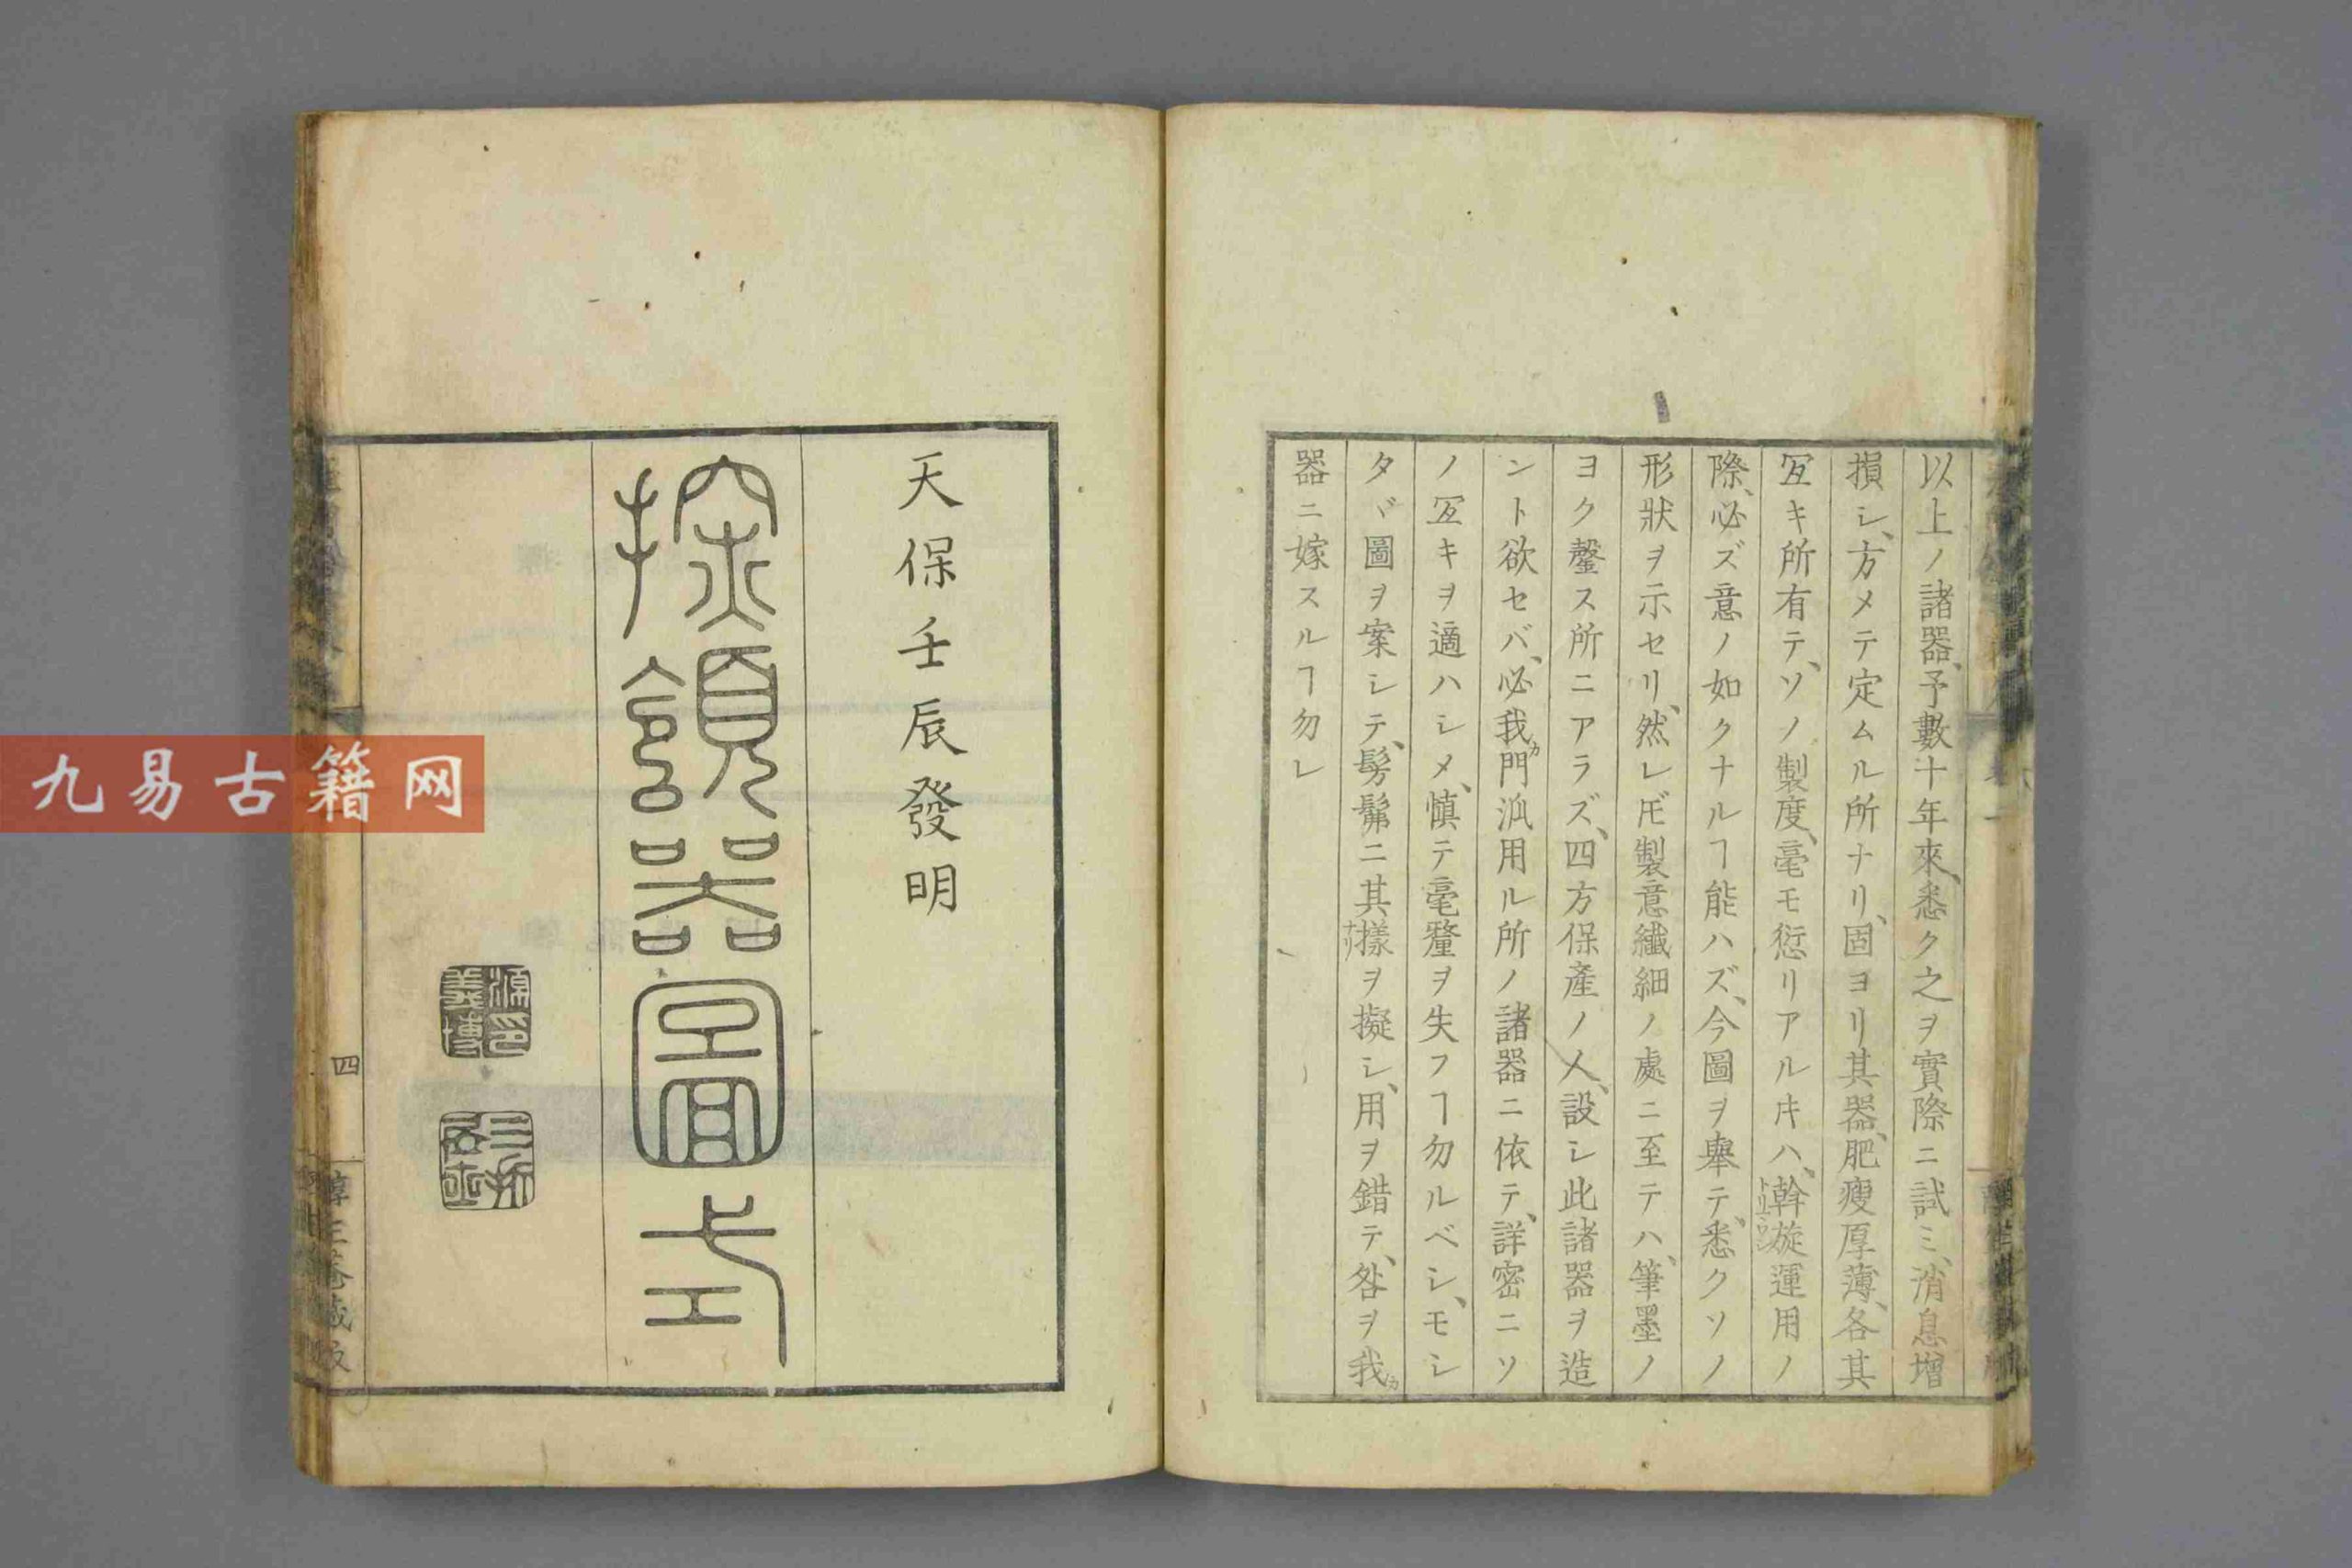 以上ノ諸器、予數十年來、悉ク之ヲ實際ニ試ミ、消息增
損シ、方メテ定ムル所ナリ、固ヨリ其器、肥瘦厚薄、各其
冝キ所有テ、ソノ製度、毫モ愆リアルキハ、斡旋運用ノ
際、必ズ意ノ如クナルヿ能ハズ、今圖ヲ擧テ、悉クソノ
形狀ヲ示セリ、然レ𪜈製意纎細ノ處ニ至テハ、筆墨ノ
ヨク罄ス所ニアラズ、四方保產ノ人、設シ此諸器ヲ造
ント欲セバ、必我門派用ル所ノ諸器ニ依テ、詳密ニソ
ノ冝キヲ適ハシメ、愼テ毫釐ヲ失フヿ勿ルベシ、モシ
タヾ圖ヲ案シテ、髣髴ニ其樣ヲ擬シ、用ヲ錯テ、咎ヲ我
器ニ嫁スルヿ勿レ
天保壬辰發明
探頷器圖式
源印義博
四
九易古籍网